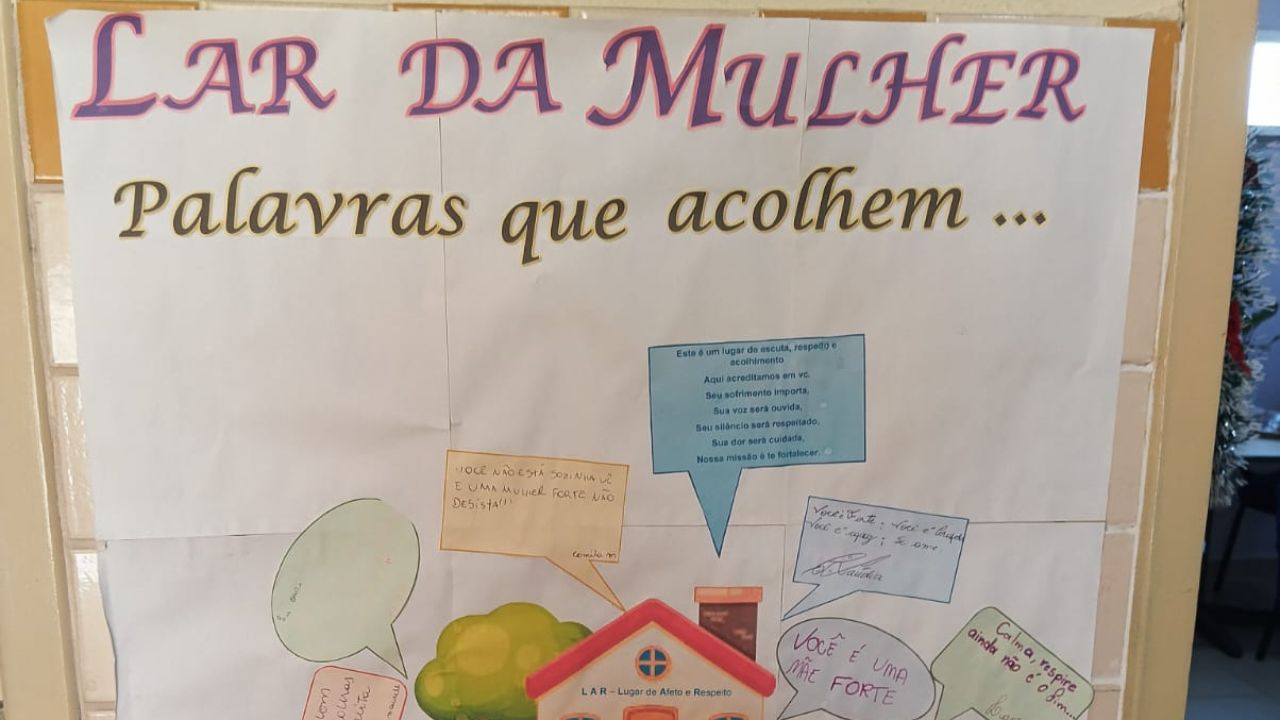 LAR DA MULHER
Palavras que acolhem ...
Este é um lugar de escuta, respeito e
acolhimento
Aqui acreditamos em vc.
Seu sofrimento importa,
Sua voz será ouvida,
Seu silêncio será respeitado,
Sua dor será cuidada,
Nossa missão é te fortalecer.
VOCÊ NÃO ESTÁ SOZINHA VC
E UMA MULHER FORTE NÃO
DESISTA!!!
camila m
Você é Forte; Você é
Você é capaz; Se ame
VOCÊ É UMA
MÃE FORTE
Calma, respire
ainda não é o fim...
L A R – Lugar de Afeto e Respeito